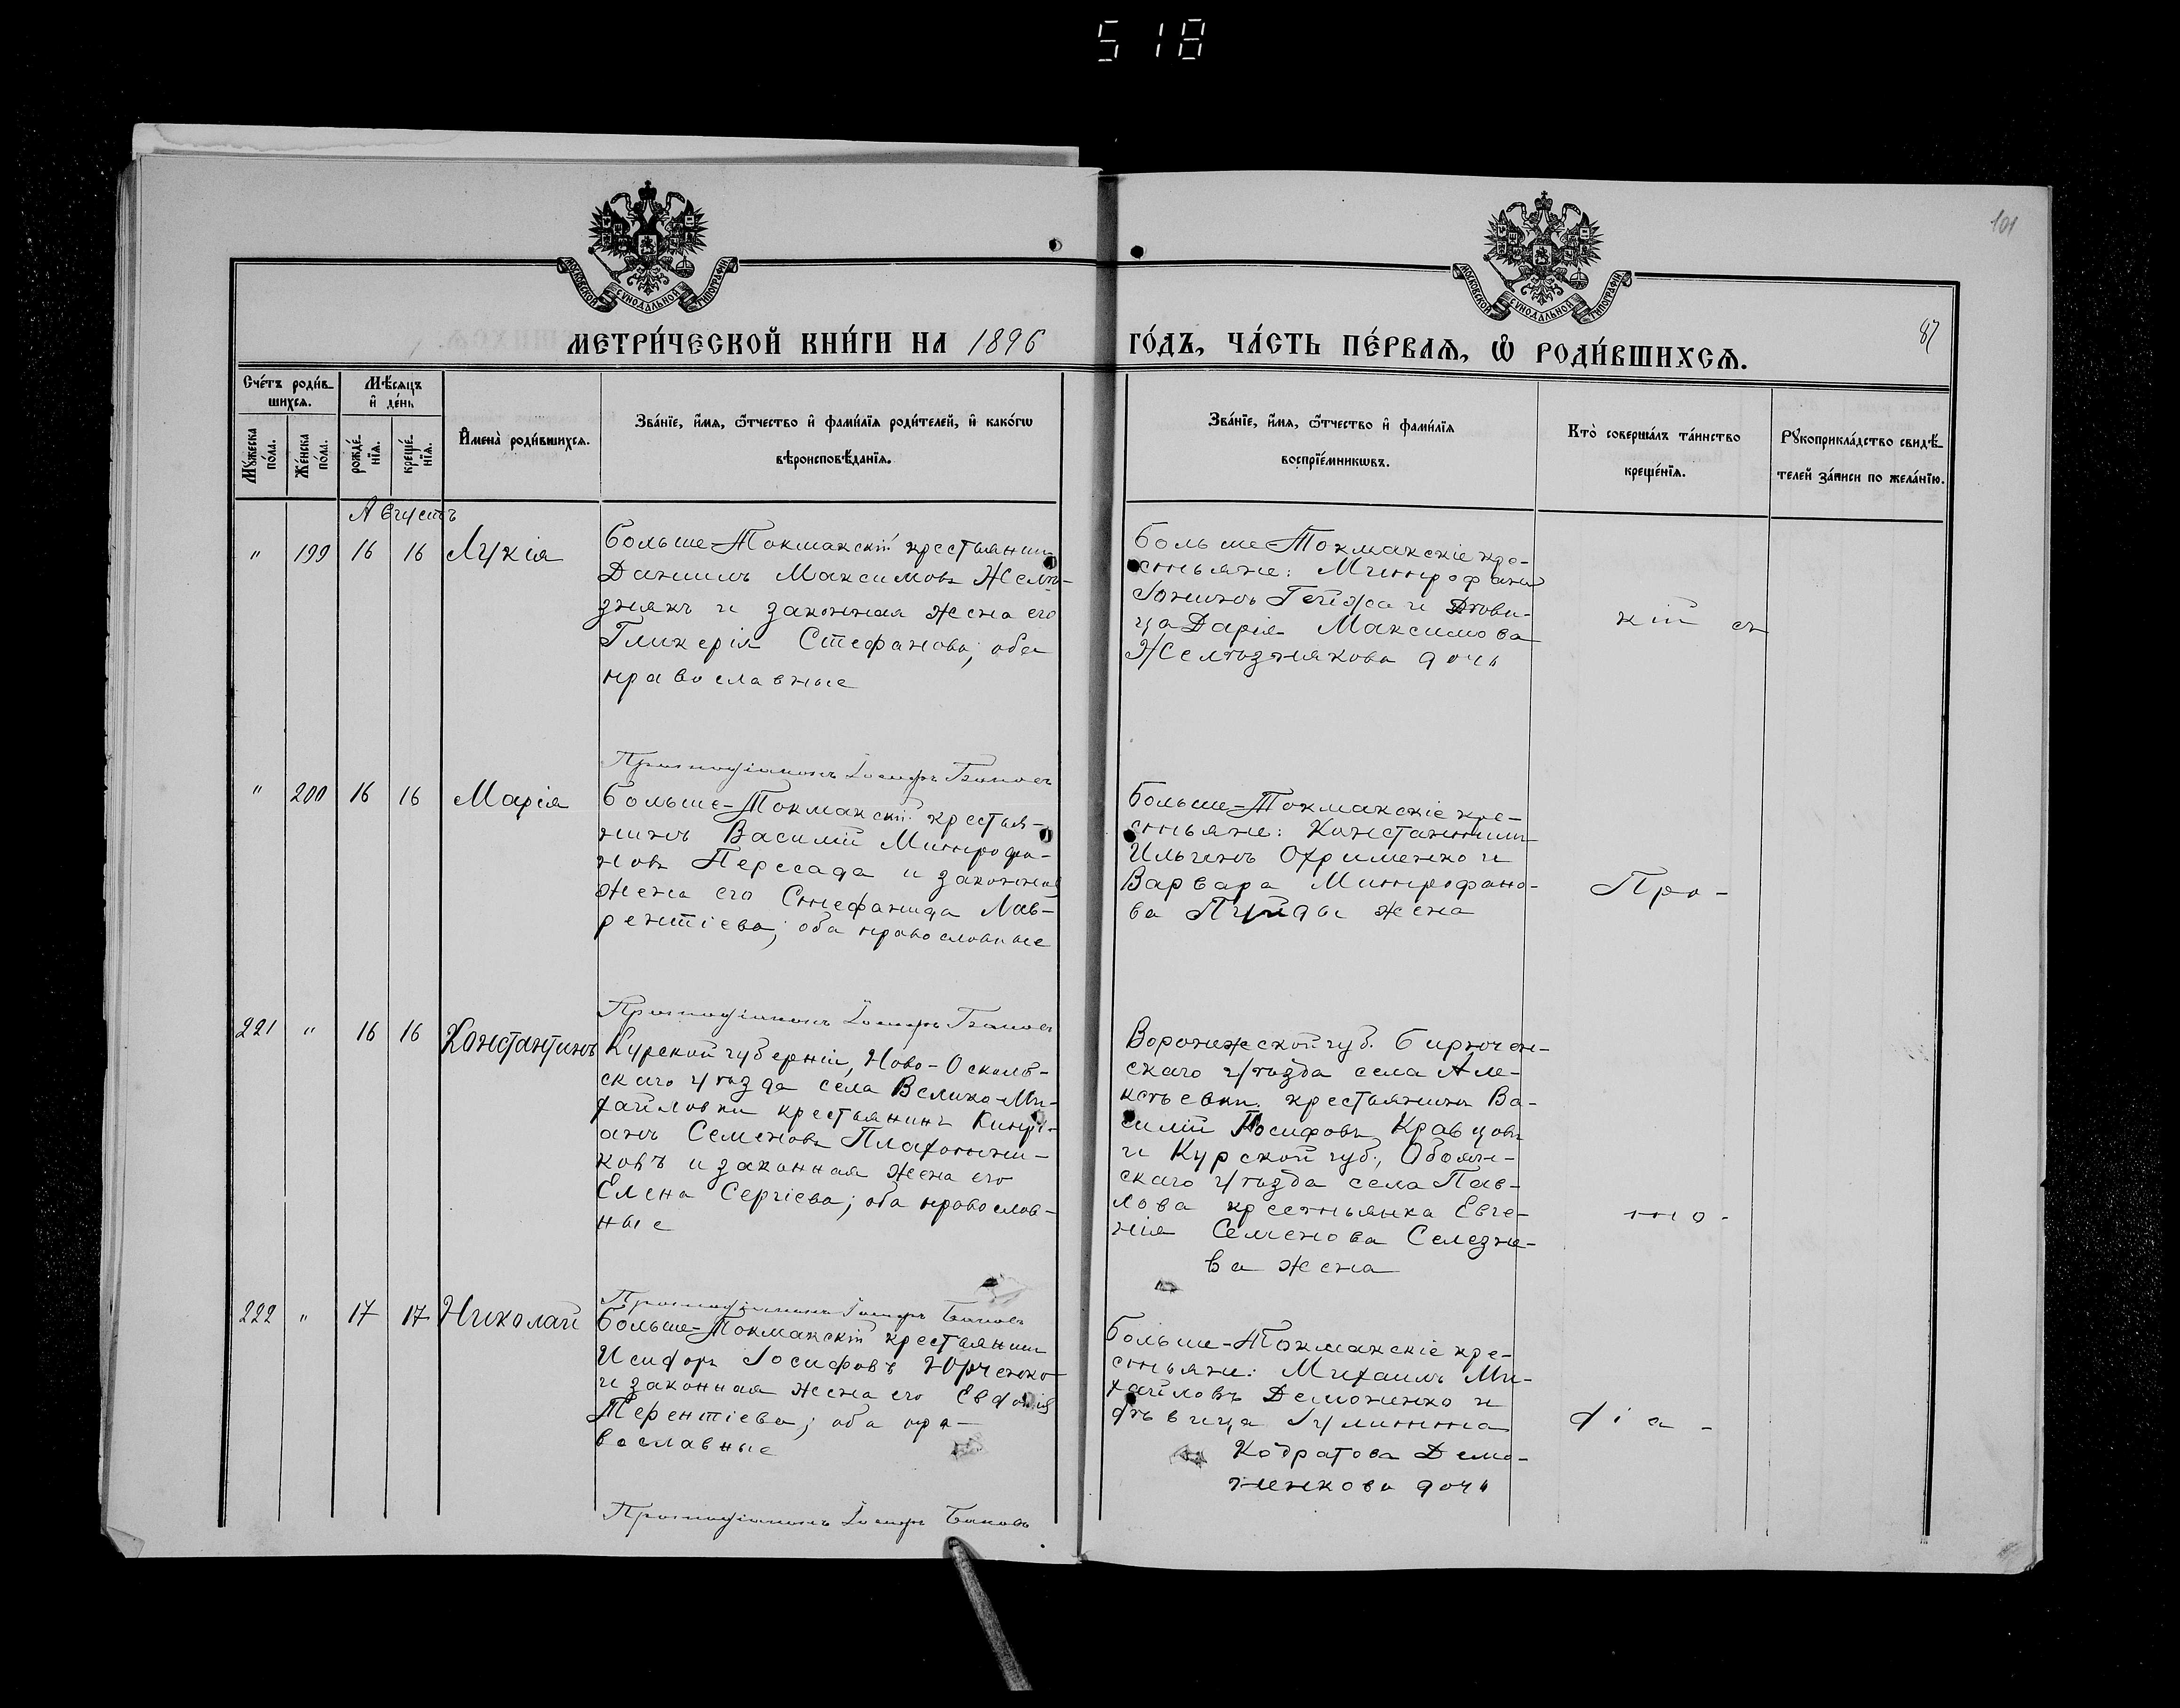 518
101
87
МОСКОВСКОЙ СУНОДАЛЬНОЙ ТИПОГРАФІИ
МОСКОВСКОЙ СУНОДАЛЬНОЙ ТИПОГРАФІИ
МЕТРИ́ЧЕСКОЙ КНИ́ГИ НА 1896 ГО́ДЪ, ЧА́СТЬ ПЕ́РВАѦ, Ѡ҆ РОДИ́ВШИХСѦ.
Сче́тъ роди́в-
шихсѧ.
Мꙋ́жеска по́ла.
Же́нска по́ла.
Мѣ́сѧцъ
и҆ де́нь
рожде́-
нїѧ.
креще́-
нїѧ.
И҆мена̀ роди́вшихсѧ.
Зва́нїе, и҆́мѧ, ѻ҆́тчество и҆ фами́лїѧ роди́телей, и҆ како́гѡ
вѣроисповѣ́данїѧ.
Зва́нїе, и҆́мѧ, ѻ҆́тчество и҆ фами́лїѧ
воспрїе́мникѡвъ.
Кто̀ соверша́лъ та́инство
креще́нїѧ.
Рꙋкоприкла́дство свидѣ́-
телей за́писи по жела́нїю.
Августъ
" 199 16 16 Лукія
Больше-Токмакскій крестьянинъ
Даніилъ Максимовъ Желѣ-
знякъ и законная жена его
Гликерія Стефанова; оба
православные
Больше-Токмакскіе кре-
стьяне: Митрофанъ
и дѣви-
ца Дарія Максимова
Желѣзнякова дочь
кій съ
Протодіаконъ Іосифъ Баковъ
" 200 16 16 Марія
Больше-Токмакскій крестья-
нинъ Василій Митрофа-
новъ Пересада и законная
жена его Стефанида Лав-
рентіева; оба православные
Больше-Токмакскіе кре-
стьяне: Константинъ
Ильинъ Охрименко и
Варвара Митрофано-
ва жена
Про-
Протодіаконъ Іосифъ Баковъ
221 " 16 16 Константинъ
Курской губерніи, Ново-Осколь-
скаго уѣзда села Велико-Ми-
хайловки крестьянинъ Кипрі-
анъ Семеновъ Плахотни-
ковъ и законная жена его
Елена Сергіева; оба православ-
ные
Воронежской губ. Бирючен-
скаго уѣзда села Але-
ксѣевки крестьянинъ Ва-
силій Іосифовъ Кравцовъ
и Курской губ., Обоян-
скаго уѣзда села Пав-
лова крестьянка Евге-
нія Семенова Селезне-
ва жена
то-
Протодіаконъ Іосифъ Баковъ
222 " 17 17 Николай
Больше-Токмакскій крестьянинъ
Исидоръ Іосифовъ Юрченко
и законная жена его
Терентіева; оба пра-
вославные
Больше-Токмакскіе кре-
стьяне: Михаилъ Ми-
хайловъ Демоненко и
дѣвица Іулитта
Кодратова Демо-
ненкова дочь
діа-
Протодіаконъ Іосифъ Баковъ